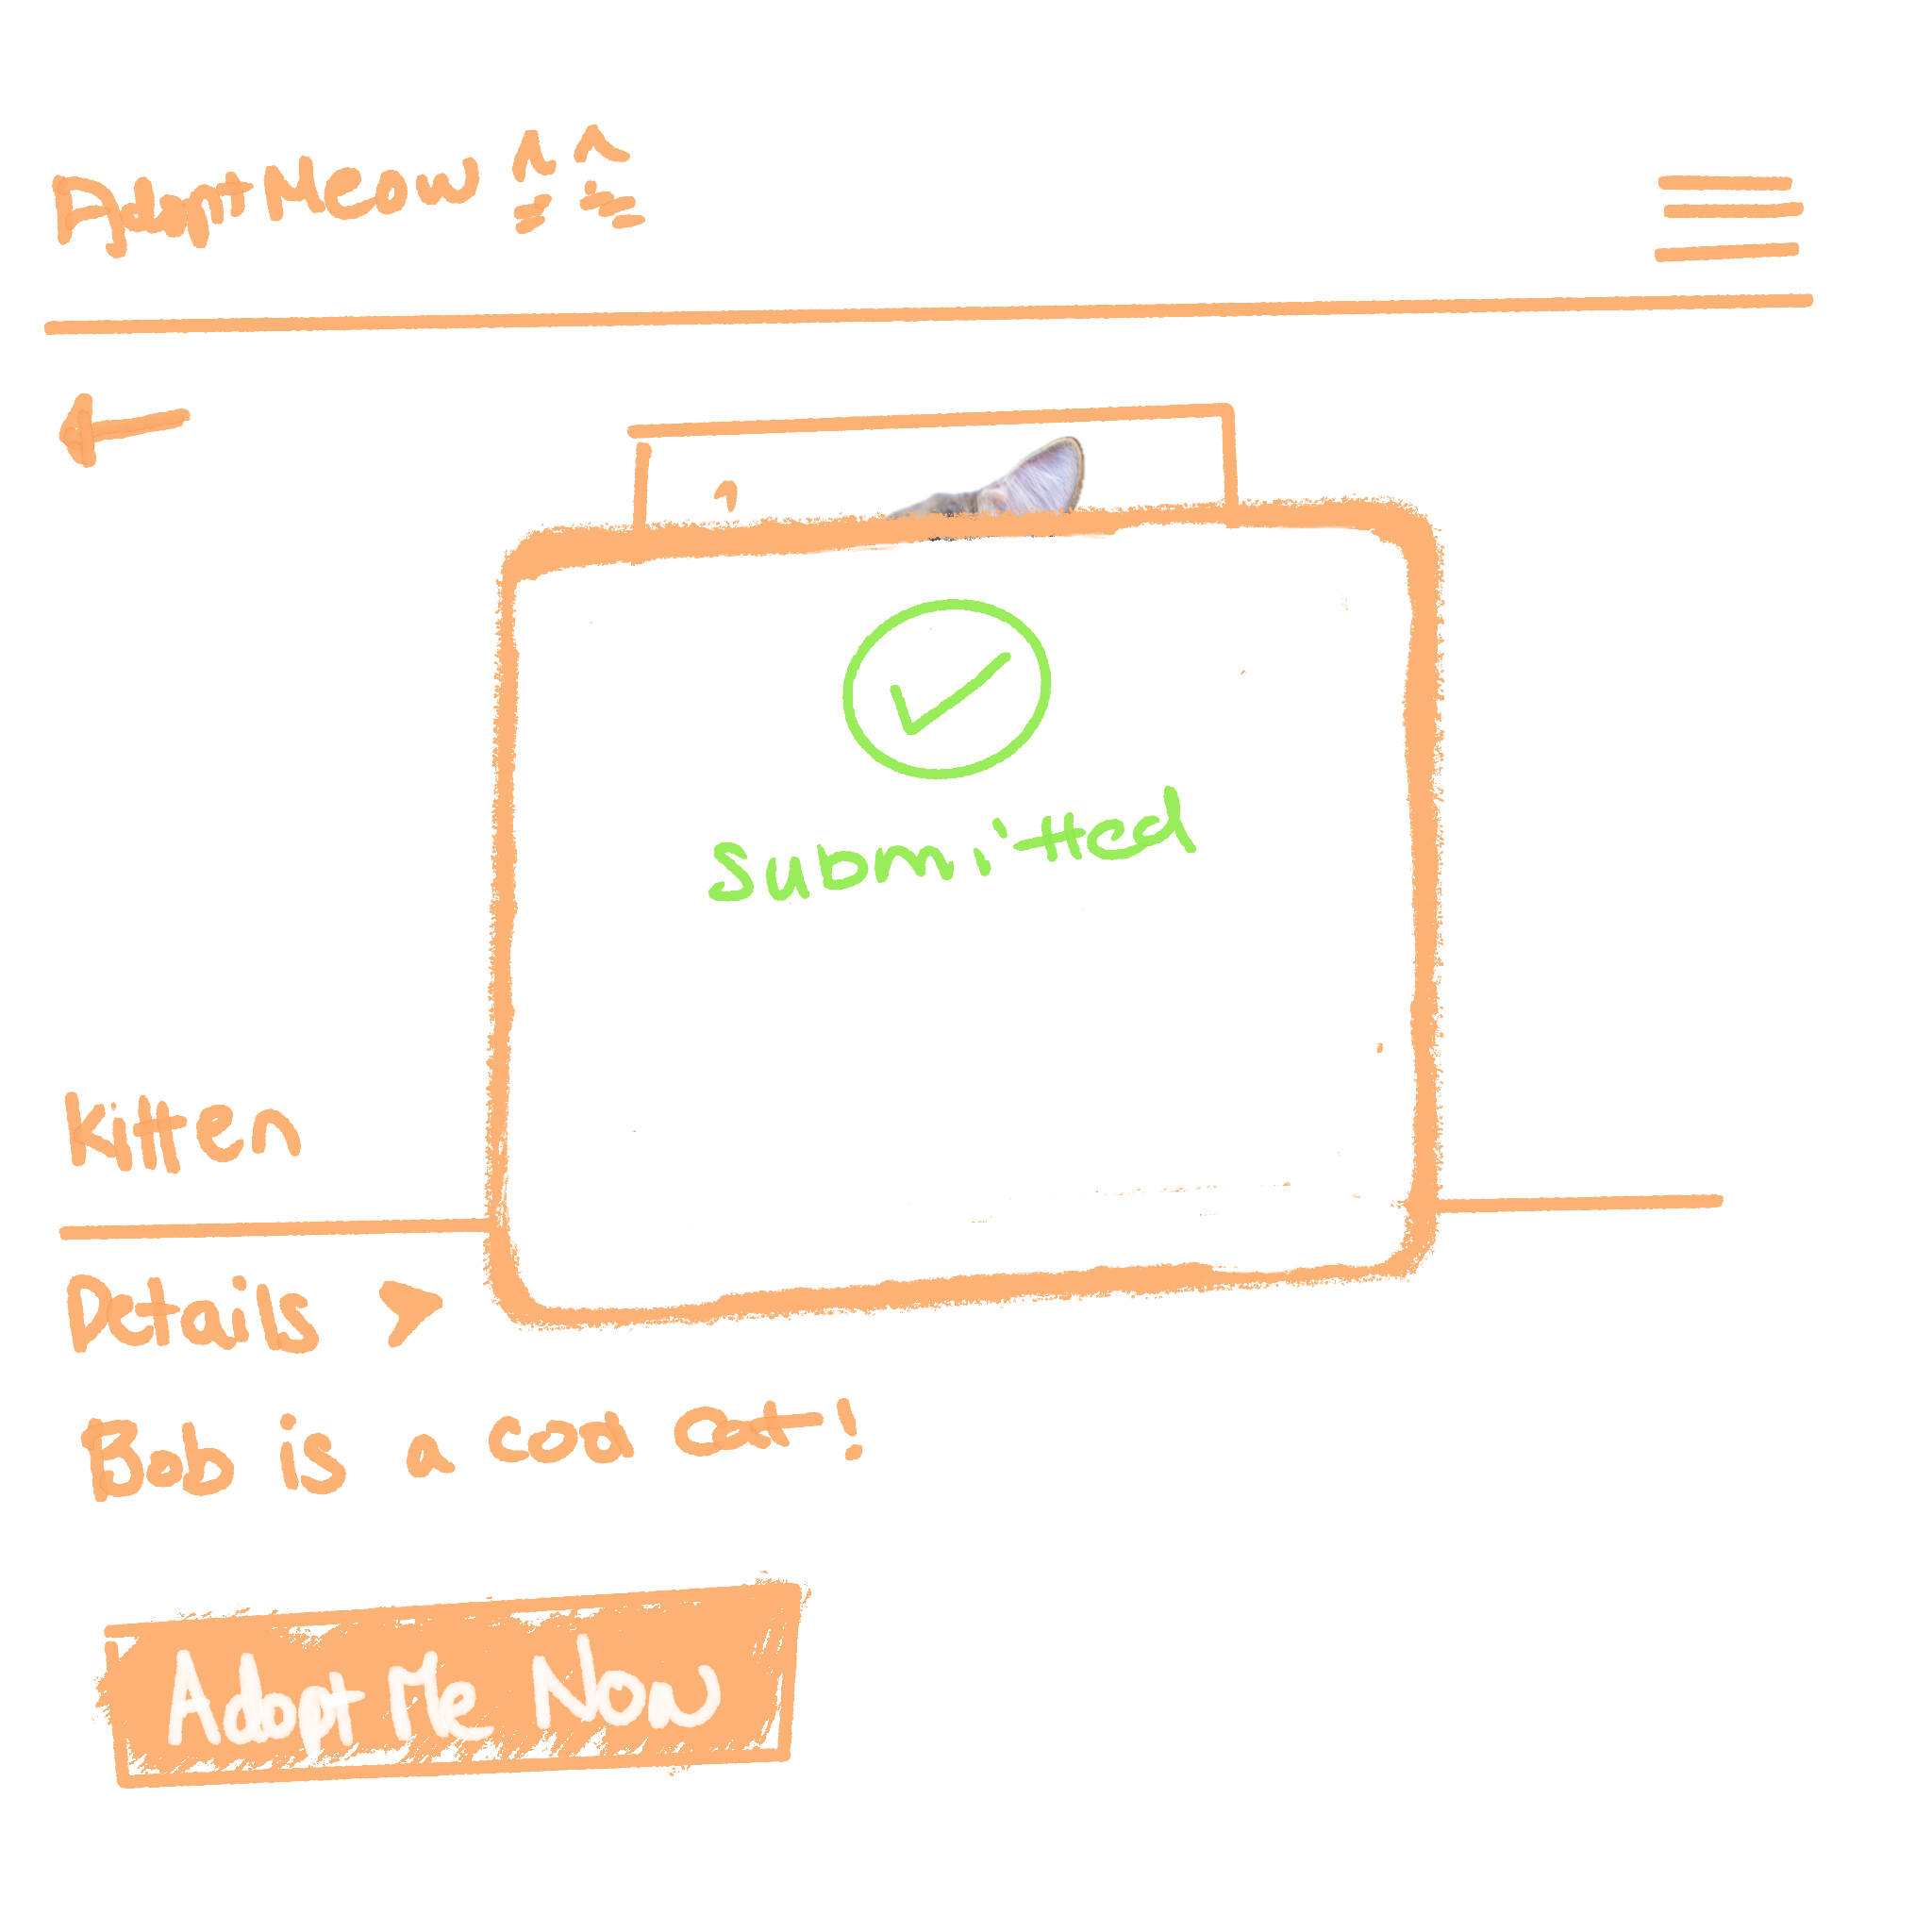 AdoptMeow
Submitted
Kitten
Details >
Bob is a cool cat!
Adopt Me Now